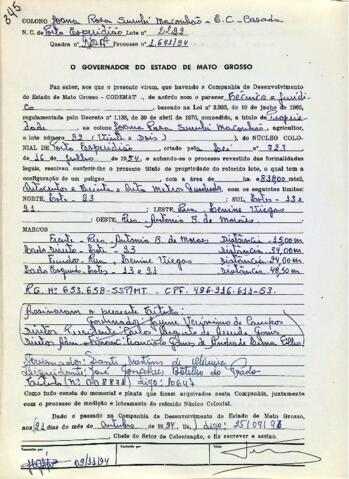 345
COLONO Joana Rosa Surubi Maconhão - E.C. Casada
N. C. de Porto Esperidião Lote n° 22
Quadra n° Processo n° 1.641/94
O GOVERNADOR DO ESTADO DE MATO GROSSO
Faz saber, aos que o presente virem, que havendo a Companhia de Desenvolvimento
do Estado de Mato Grosso - CODEMAT -, de acordo com o parecer Técnico e Jurídi
co, bascada na Lei n° 2.933, de 10 de junho de 1969,
regulamentada pelo Decreto n° 1.138, de 30 de abril de 1970, concedido a título de
dade, ao colono Joana Rosa Surubi Maconhão, agricultor,
o lote número 22 (Vinte e Dois) do NÚCLEO COLO-
NIAL DE Porto Esperidião, criado pela Lei n° 723
de 16 de Julho de 1954, e achando-se o processo revestido das formalidades
legais, resolveu conferir-lhe o presente título de propriedade do referido lote, o qual tem a
configuração de um polígono com a área de mts2,
Oitocentos e Trinta e Oito Metros Quadrados, com os seguintes limites:
NORTE, Lote - 23 ; SUL, Lots - 13 e
21 ; LESTE, Rua - Lenine Viegas
; OESTE, Rua - Antonio B. de Moraes
MARCOS
Frente - Rua - Antonio B. de Moraes Distância - 15,00m
Lado Direito - Lote - 23 Distância - 34,00m
Fundos - Rua - Lenine Viegas Distância - 24,00m
Lado Esquerdo - Lots - 13 e 21 Distância - 48,50m
RG. N° 653.658-SSP/MT. - CPF. 496-916-611-53.
Assinaram o presente Título:
Governador: Jayme Veríssimo de Campos
Diretor Presidente: Carlos Augusto de Arruda Gomes
Diretor Adm. e Financ: Francisco Gomes de Andrade Lima Filho
José Gonçalves Botelho do Prado
Título (N° 008838) Lgo: 10647
Como tudo consta do memorial e planta que ficam arquivados nesta Companhia, juntamente
com o processo de medição e loteamento do referido Núcleo Colonial.
Dado e passado na Companhia de Desenvolvimento do Estado de Mato Grosso,
aos 21 dias do mês de Outubro de 1994. Eu,
, Chefe do Setor de Colonização, o fiz escrever e assino.
Transcrito por Conferido por Visto